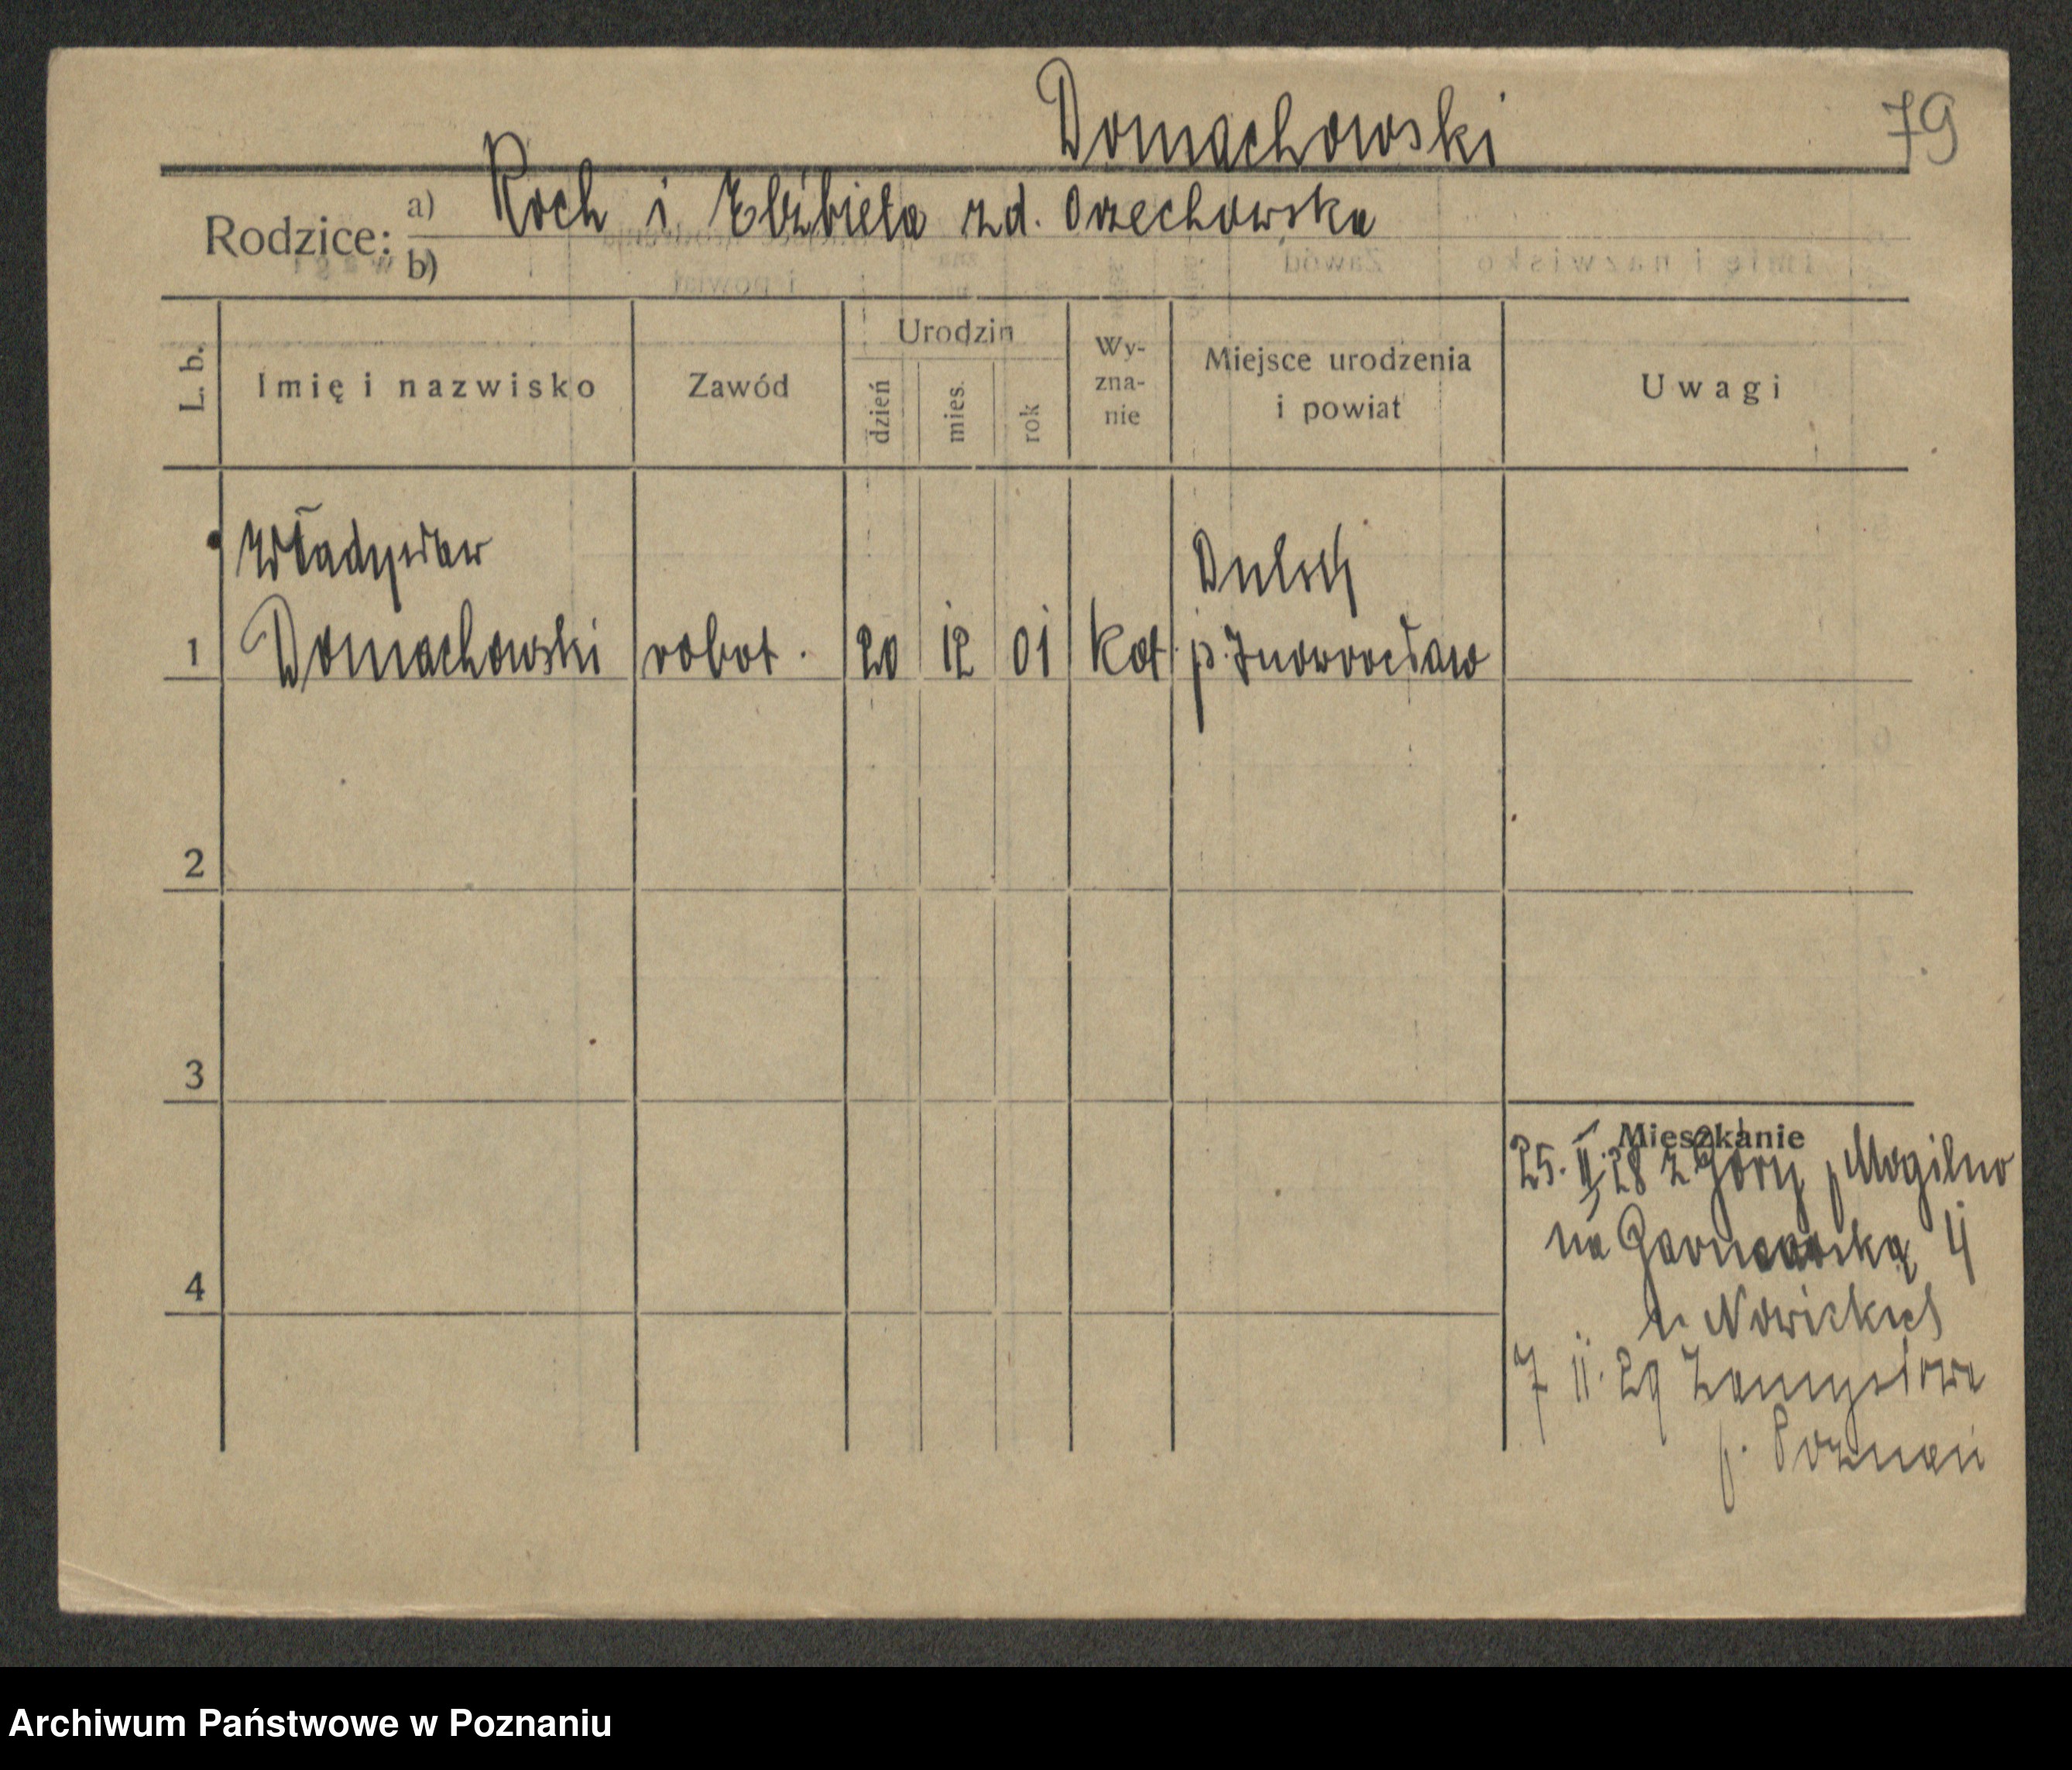 Domachowski
79
Rodzice: a) Roch i Elżbieta zd. Orzechowska
b)
L. b. Imię i nazwisko Zawód Urodzin dzień mies. rok Wy-zna-nie Miejsce urodzenia i powiat Uwagi
Władysław
1 Domachowski robot. 20 12 01 kat. p. Inowrocław
2
3
4
Mieszkanie
25. II. 28 z Góry p Mogilno
na Garncarską 4
u Nowickich
7 II. 29 Zamysłowa
p. Poznań
Archiwum Państwowe w Poznaniu